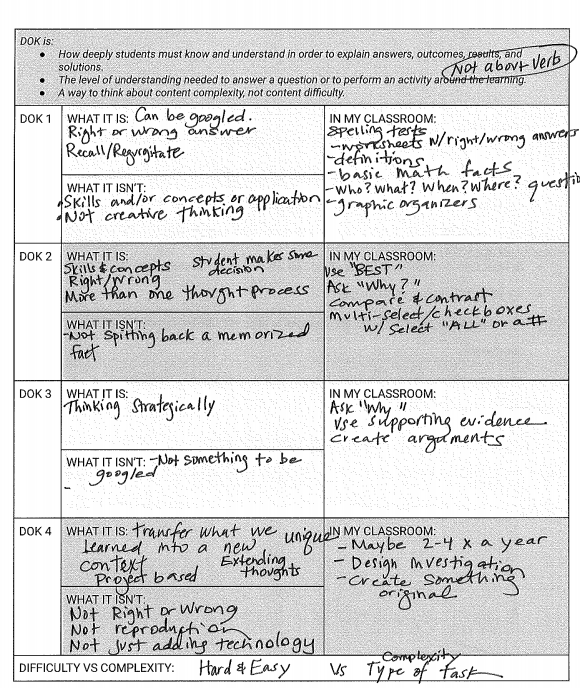 DOK is:
• How deeply students must know and understand in order to explain answers, outcomes, results, and
solutions.
• The level of understanding needed to answer a question or to perform an activity around the learning.
• A way to think about content complexity, not content difficulty.
Not about Verb
DOK 1
WHAT IT IS: Can be googled.
Right or wrong answer
Recall/Regurgitate
WHAT IT ISN'T:
• Skills and/or concepts or application
• Not creative thinking
IN MY CLASSROOM:
Spelling tests
- worksheets w/right/wrong answers
- definitions
- basic math facts
- Who? What? When? Where? questio
- graphic organizers
DOK 2
WHAT IT IS:
Skills & concepts
Student makes some
decision
Right/Wrong
More than one thought process
WHAT IT ISN'T:
- Not Spitting back a memorized
fact
IN MY CLASSROOM:
Use "BEST"
Ask "Why?"
Compare & contrast
multi-select/checkboxes
w/ Select "ALL" or a #
DOK 3
WHAT IT IS:
Thinking Strategically
WHAT IT ISN'T: - Not something to be
googled
-
IN MY CLASSROOM:
Ask "Why"
Use supporting evidence
Create arguments
DOK 4
WHAT IT IS: Transfer what we
Learned into a new unique
context
Extending
thoughts
Project based
WHAT IT ISN'T:
Not Right or Wrong
Not reproduction
Not just adding technology
IN MY CLASSROOM:
- Maybe 2-4 x a year
- Design Investigation
- Create Something
original
DIFFICULTY VS COMPLEXITY: Hard & Easy Vs Complexity
Type of task